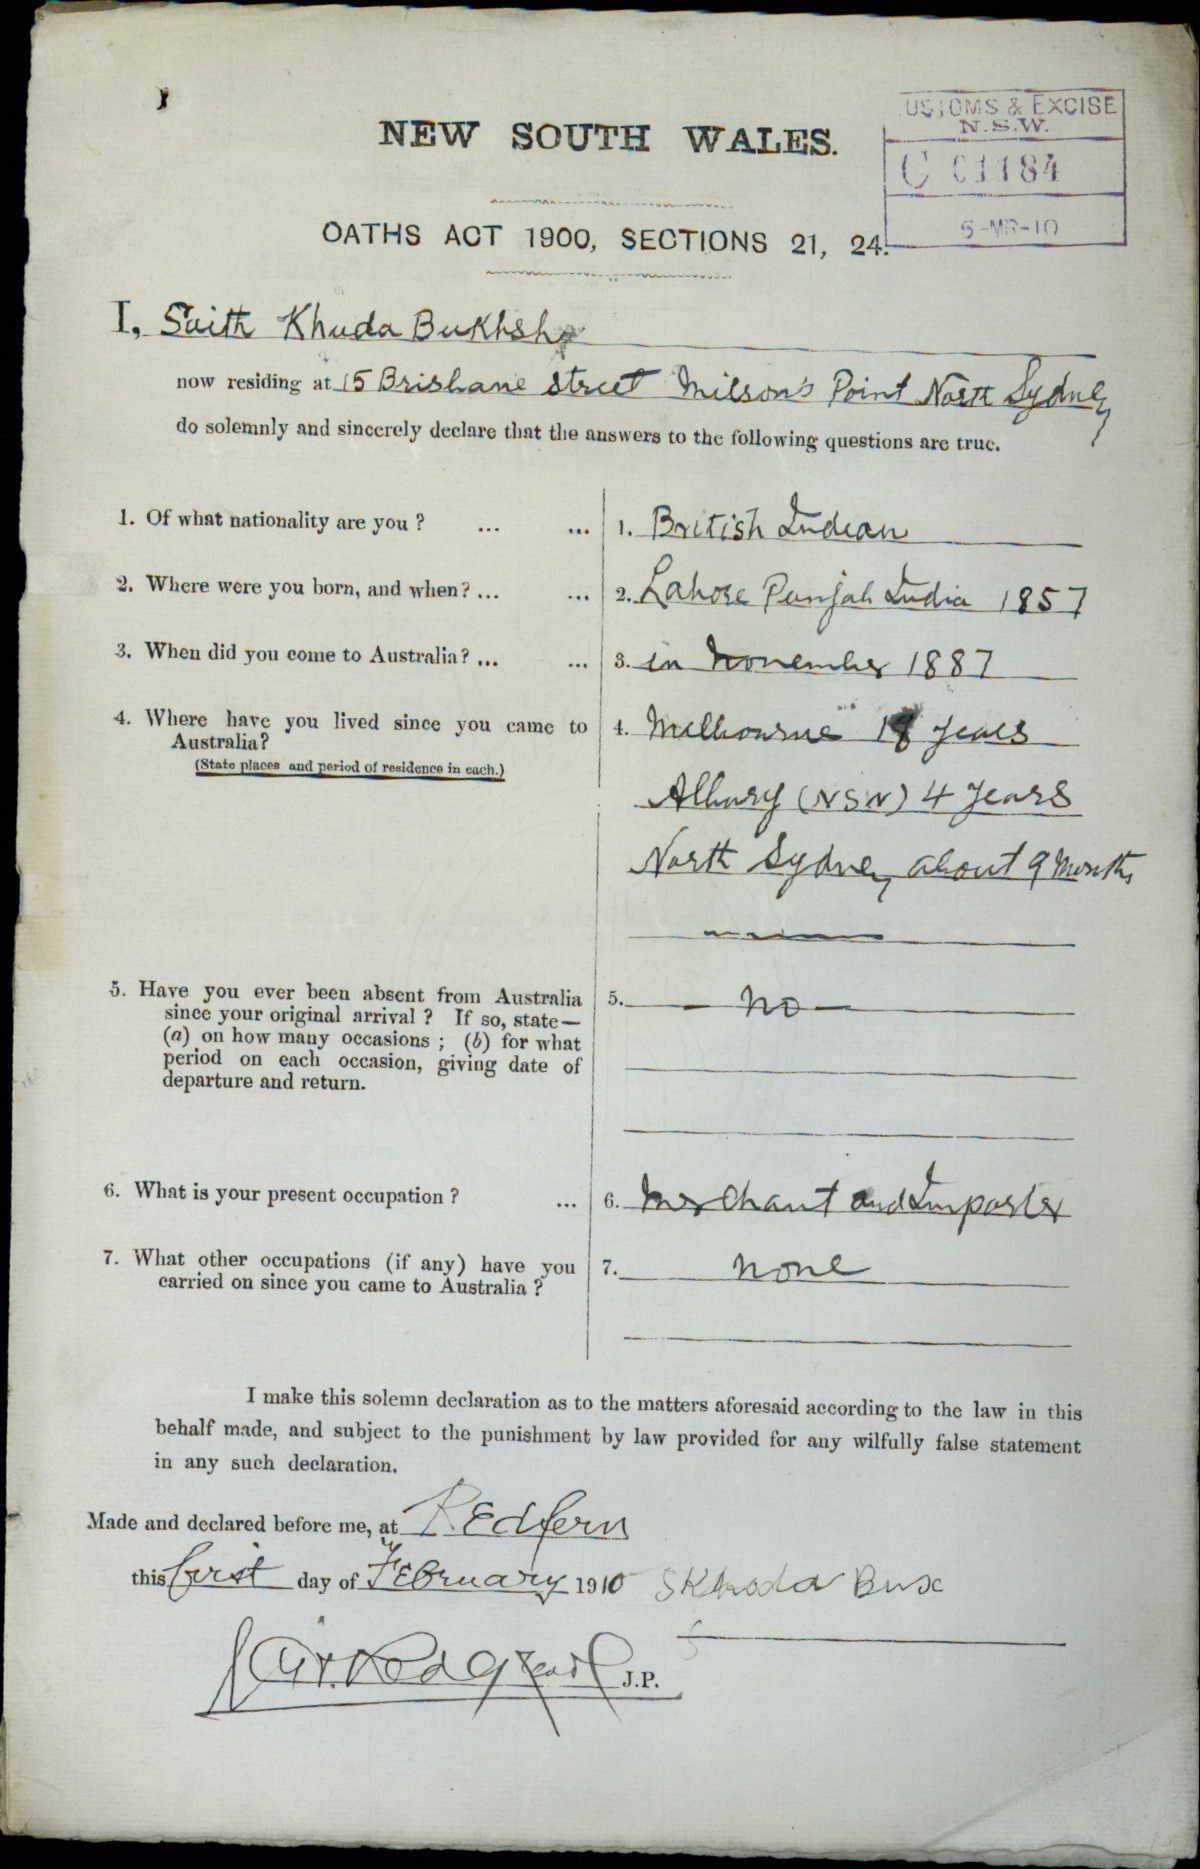 USTOMS & EXCISE
N.S.W.
C 01184
5-MR-10
NEW SOUTH WALES.
OATHS ACT 1900, SECTIONS 21, 24.
I, Saith Khuda Bukhsh
now residing at 15 Brisbane Street Milson's Point North Sydney
do solemnly and sincerely declare that the answers to the following questions are true.
1. Of what nationality are you ? ... ... 1. British Indian
2. Where were you born, and when? ... ... 2. Lahore Punjab India 1857
3. When did you come to Australia? ... ... 3. in November 1887
4. Where have you lived since you came to 4. Melbourne years
Australia?
(State places and period of residence in each.)
Albury (NSW) 4 years
North Sydney about 9 Months
5. Have you ever been absent from Australia 5. — No —
since your original arrival ? If so, state—
(a) on how many occasions ; (b) for what
period on each occasion, giving date of
departure and return.
6. What is your present occupation ? ... 6. Merchant and Importer
7. What other occupations (if any) have you 7. None
carried on since you came to Australia ?
I make this solemn declaration as to the matters aforesaid according to the law in this
behalf made, and subject to the punishment by law provided for any wilfully false statement
in any such declaration.
Made and declared before me, at Redfern
this first day of February 1910 S Khoda Bux
J.P.